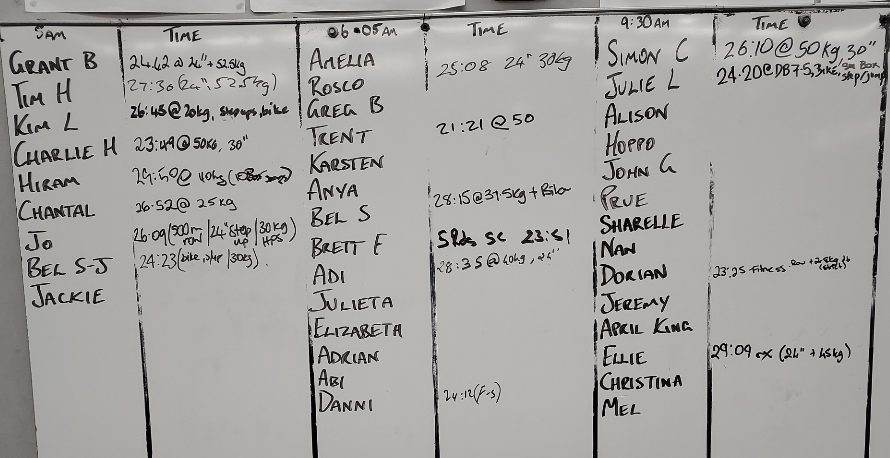 5AM TIME
GRANT B 24.42 @ 24" + 52.5kg
TIM H 27:30 (24", 52.5kg)
KIM L 26:45 @ 20kg, stepups, bike
CHARLIE H 23:49 @ 50KG, 30"
HIRAM @ 40kg
CHANTAL 26.52 @ 25kg
JO 26.09 (500m row | 24" step up | 30kg HPS)
BEL S-J 24:23 (bike, | 30kg).
JACKIE
06:05AM TIME
AMELIA 25:08 24" 30kg
ROSCO
GREG B
TRENT 21:21 @ 50
KARSTEN
ANYA 28:15 @ 37.5kg +
BEL S
BRETT F SC 23:51
ADI 28:35 @ 40kg, 24"
JULIETA
ELIZABETH
ADRIAN
ABI
DANNI 24:12 (F-S)
9:30AM TIME
SIMON C 26:10 @ 50kg 30"
JULIE L 24.20 @ DB 7.5, Bike, Box step/jump
ALISON
HOPPO
JOHN G
PRUE
SHARELLE
NAN
DORIAN 23:25 Fitness
JEREMY
APRIL KING
ELLIE 29:09 rx (24" + 45kg)
CHRISTINA
MEL